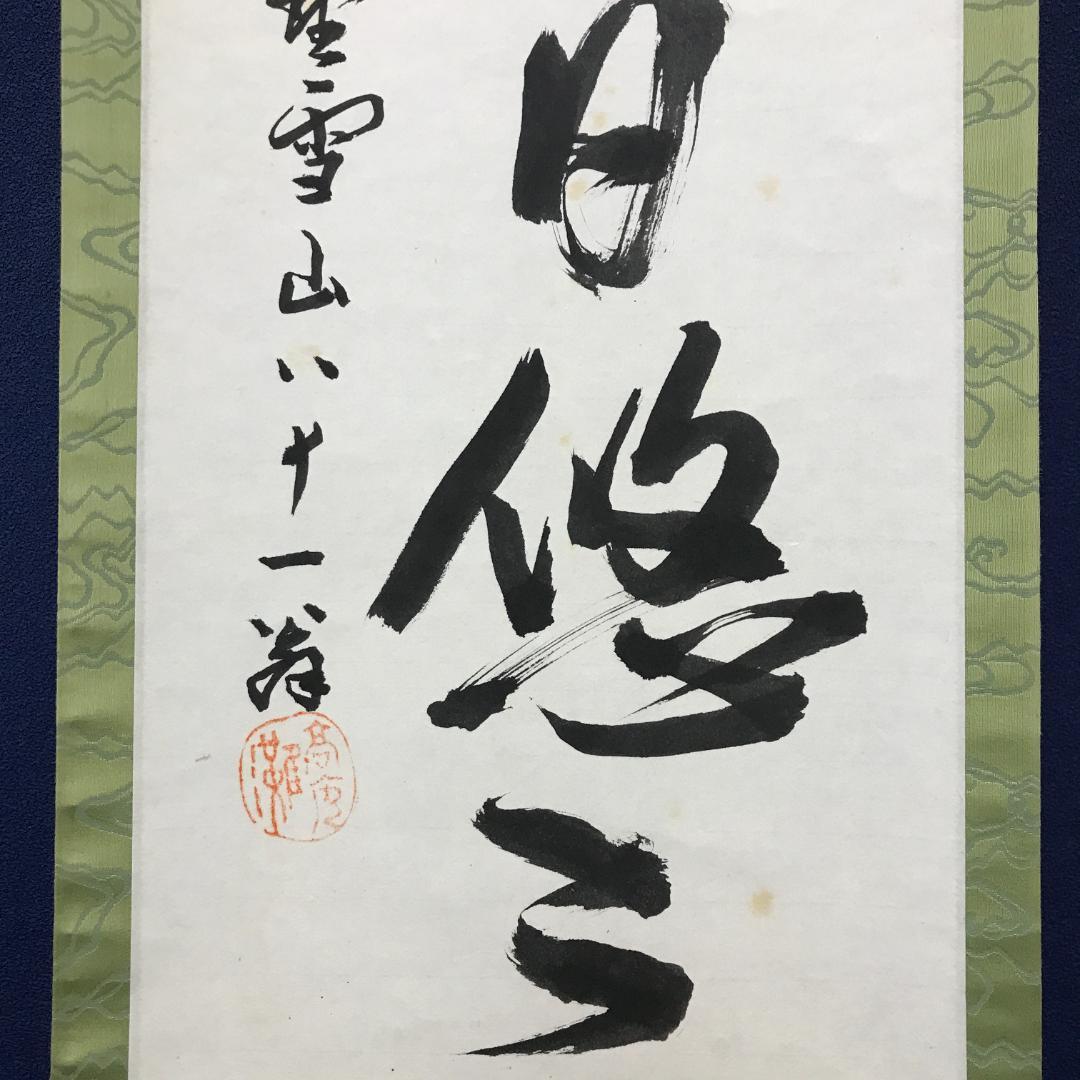 日悠々
雪山八十一翁